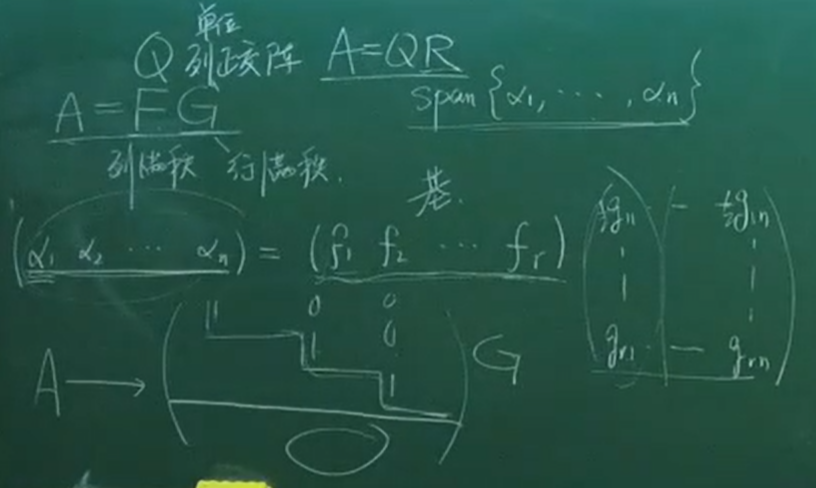 单位
Q 列正交阵 A=QR
span{α₁, ⋯ , αₙ}
A=FG
列满秩 行满秩.
基.
(α₁ α₂ ⋯ αₙ) = (f₁ f₂ ⋯ fᵣ) (g₁₁ - g₁ₙ
gᵣ₁ - gᵣₙ)
A → (1 0 0
1 0
1
0) G